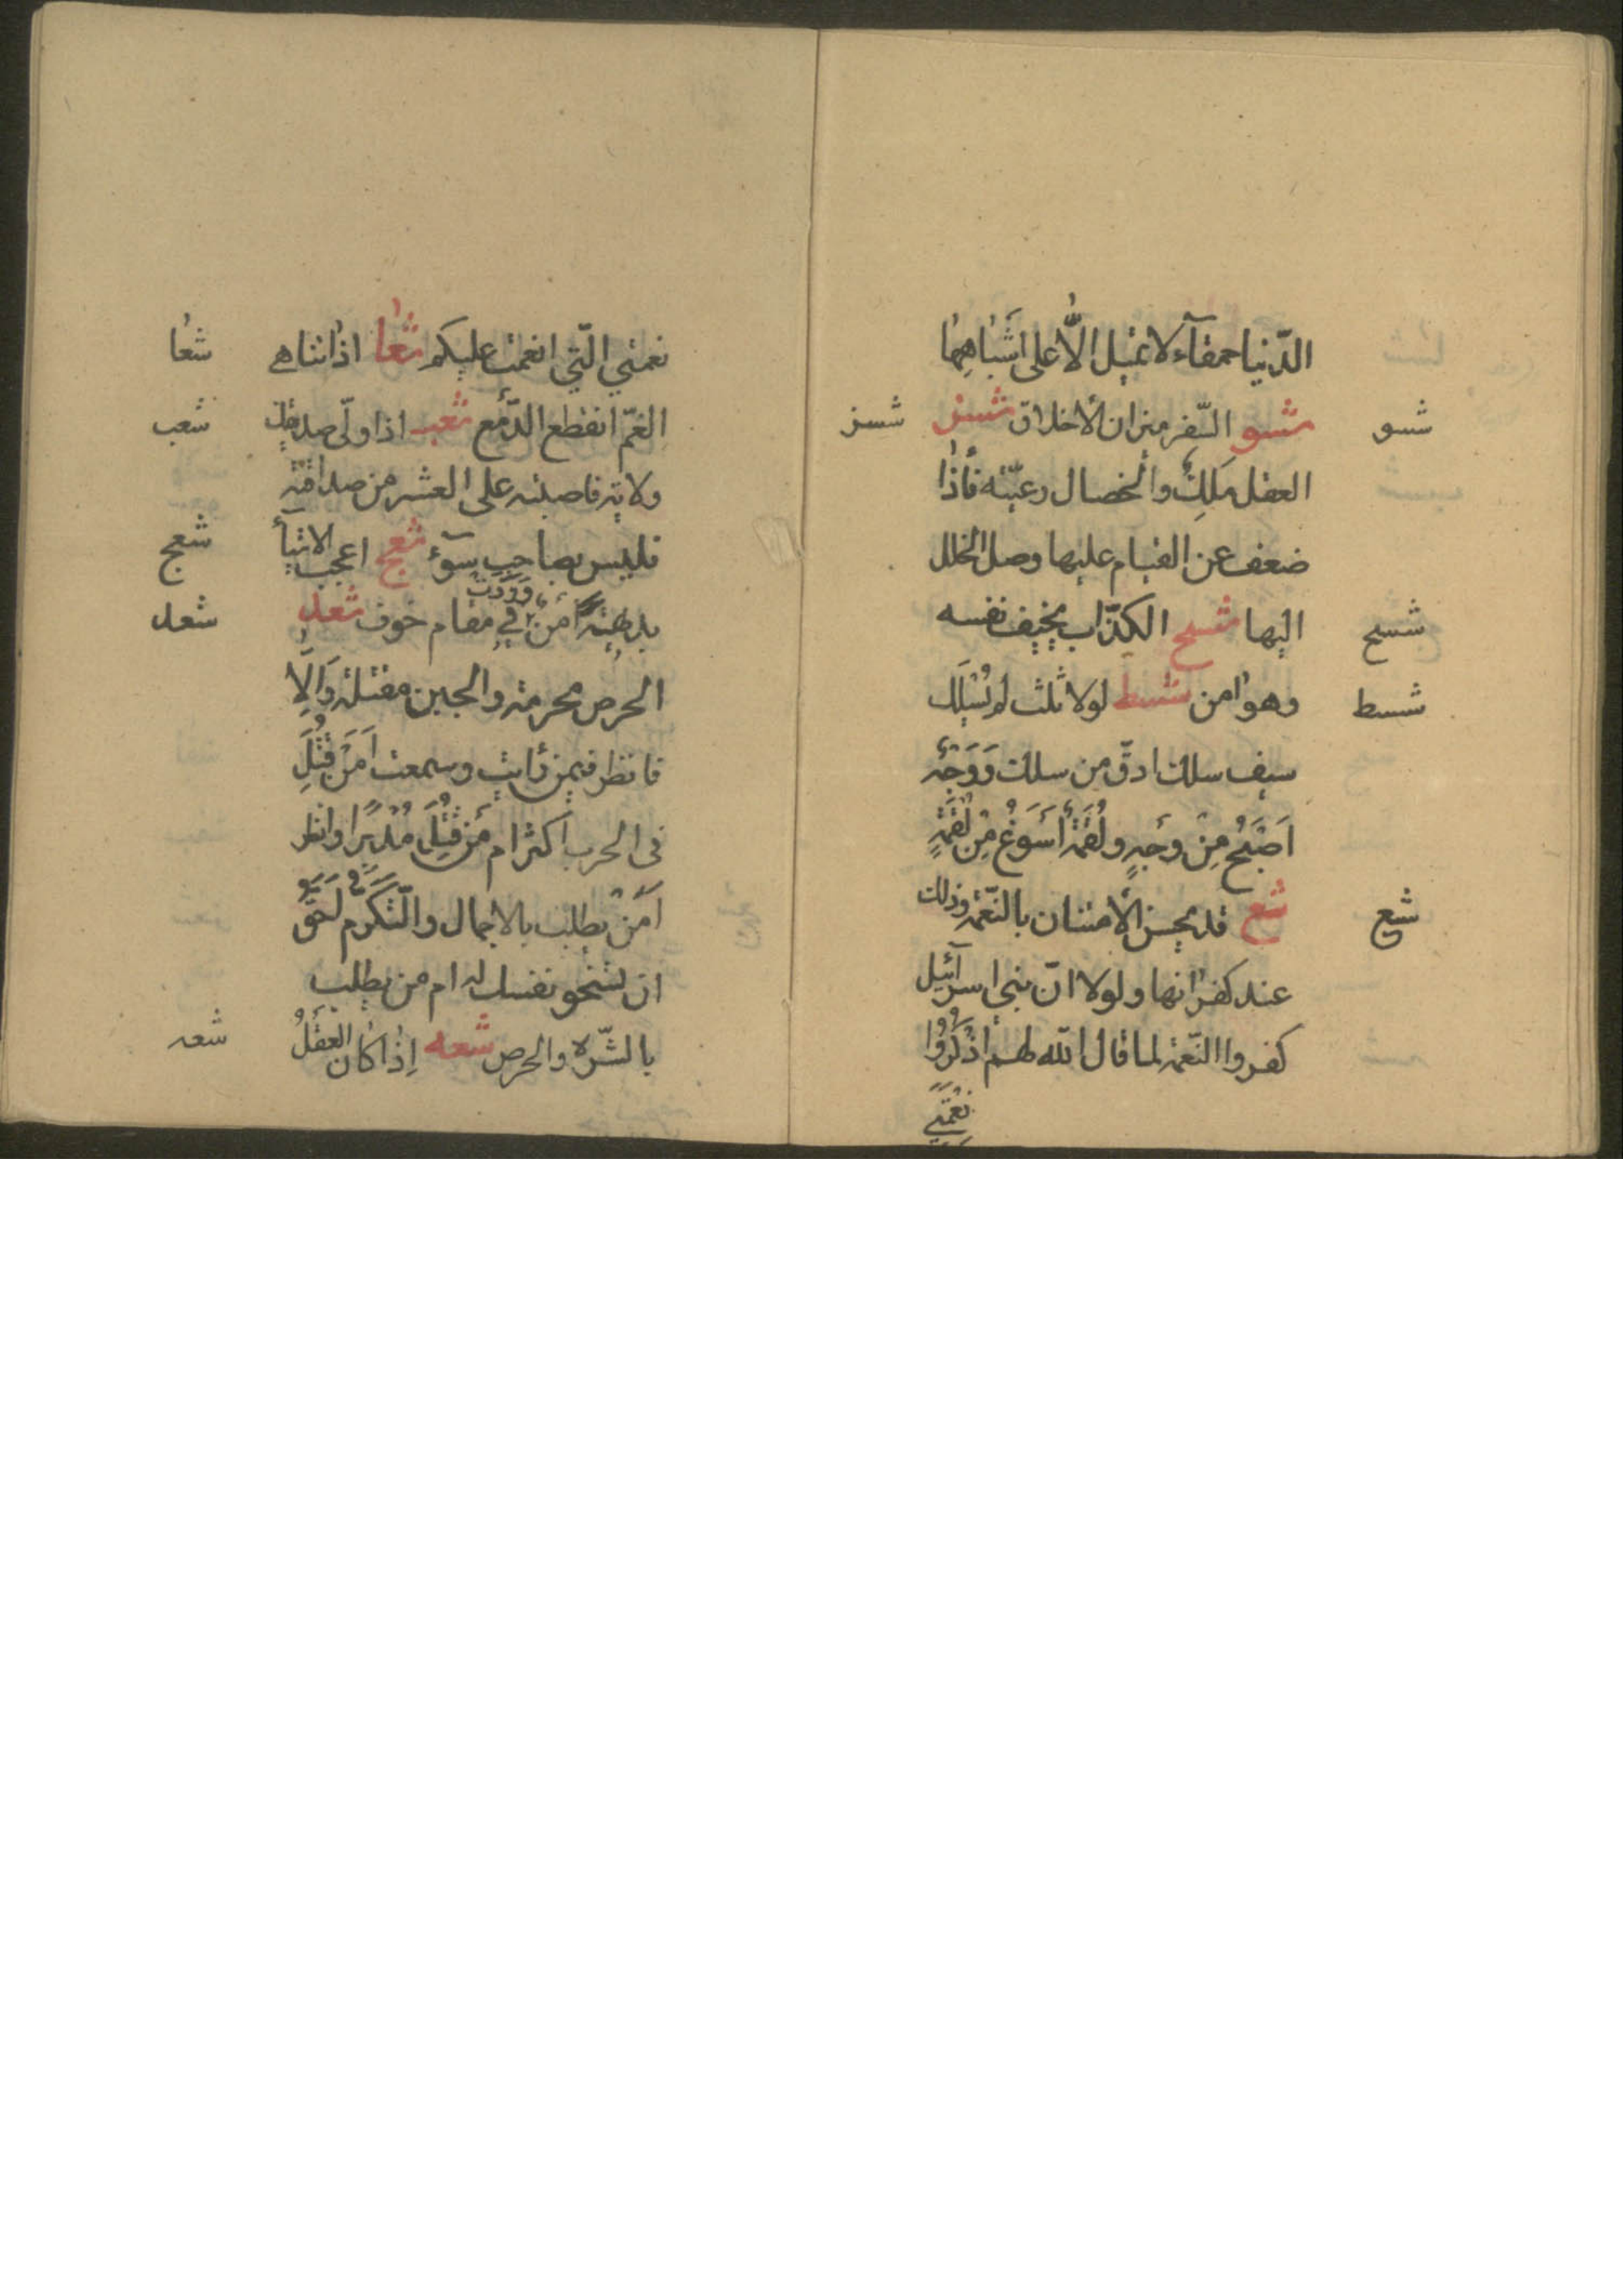 الدّنيا حمقآء لا تميل الّا على اشباهها
شسو شسو السّفر ميزان الأخلاق شسز شسز
العقل ملك والخصال رعيّته فأذا
ضعف عن القيام عليها وصل الخلل
شسح اليها شسح الكذّاب يخيف نفسه
شسط وهو امن شسط لولا ثلث لم يُسْلَل
سيف سلك ادقّ من سلك وَوَجْه
اَصْبَحُ مِنْ وَجْهٍ ولُقْمَة أَسْوَغُ مِنْ لُقْمَةٍ
شع شع قد يحسن الأمتنان بالنّعمة وذلك
عند كفرانها ولولا انّ بني اسرآئيل
كفروا النّعمة لما قال الله لهم اذْكُرُوا
نِعْمَتِي
نعمتي الّتي انعمت عليكم شعا اذا تناهى شعا
الغمّ انقطع الدّمع شعب اذا ولّى صديقك شعب
ولاية فاصبته على العشر من صداقته
فليس بصاحب سوٓء شعج اعجب الاشيآء شعج
بديهة أمن وَرَدَتْ في مقام خوف شعد شعد
الحرص محرمة والجبن مقتلة وَاِلّا
فانظر فيمن رأيت وسمعت اَمَنْ قُتِلَ
في الحرب اكثر ام مَنْ قُتِلَ مُدْبِرًا وانظر
اَمَنْ يطلب بالاجمال والتّكرّم اَحَقُّ
ان تسخو نفسك له ام من يطلب
بالشّره والحرص شعه اِذا كان العقلُ شعه